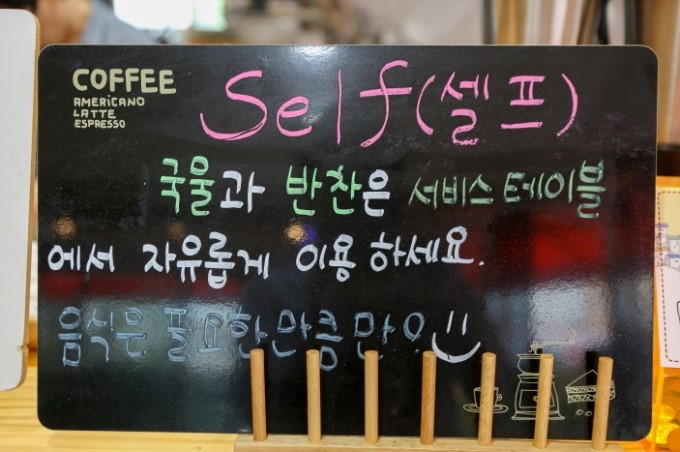 COFFEE
AMERICANO
LATTE
ESPRESSO
Self(셀프)
국물과 반찬은 서비스 테이블
에서 자유롭게 이용 하세요.
음식은 필요한만큼만!